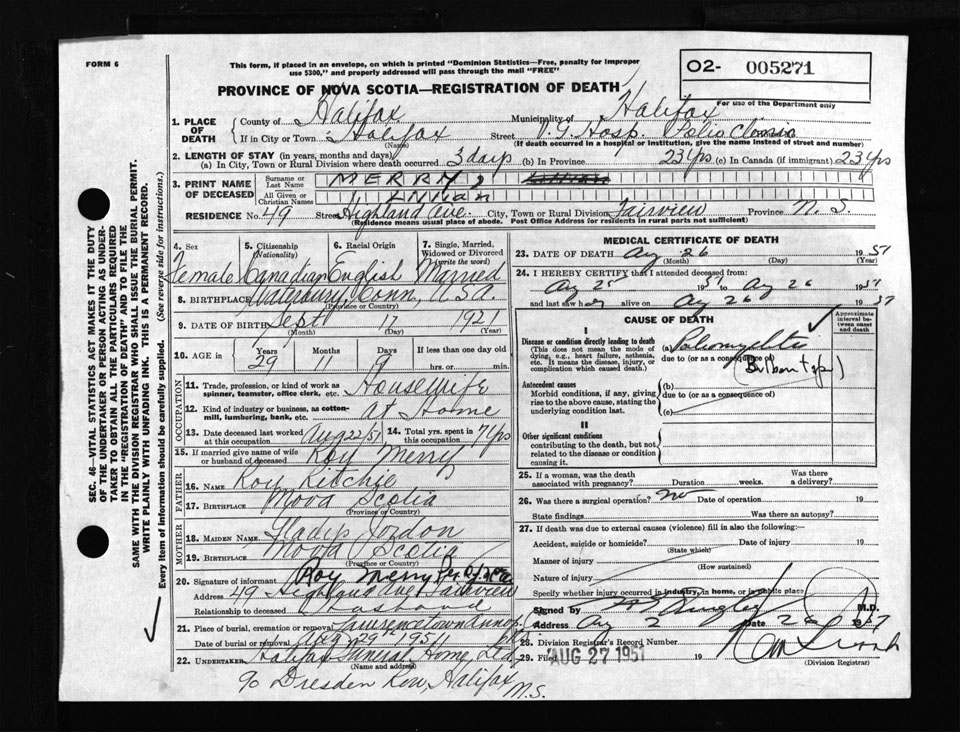 FORM 6
This form, if placed in an envelope, on which is printed "Dominion Statistics—Free, penalty for improper
use $300," and properly addressed will pass through the mail "FREE"
O2- 005271
For use of the Department only
PROVINCE OF NOVA SCOTIA—REGISTRATION OF DEATH
1. PLACE OF DEATH
County of Halifax Municipality of Halifax
If in City or Town Halifax Street V.G. Hosp. Polio Clinic
(Name) (If death occurred in a hospital or institution, give the name instead of street and number)
2. LENGTH OF STAY (in years, months and days)
(a) In City, Town or Rural Division where death occurred 3 days (b) In Province 23 yrs (c) In Canada (if immigrant) 23 yrs
3. PRINT NAME OF DECEASED
Surname or Last Name MERRY,
All Given or Christian Names
RESIDENCE No. 49 Street Highland Ave. City, Town or Rural Division Fairview Province N.S.
(Residence means usual place of abode. Post Office Address for residents in rural parts not sufficient)
4. Sex 5. Citizenship (Nationality) 6. Racial Origin 7. Single, Married, Widowed or Divorced (write the word)
Female Canadian English Married
8. BIRTHPLACE Waterbury, Conn, U.S.A.
(Province or Country)
9. DATE OF BIRTH Sept 17 1921
(Month) (Day) (Year)
10. AGE in Years Months Days If less than one day old
29 11 9 hrs. or min.
OCCUPATION
11. Trade, profession, or kind of work as spinner, teamster, office clerk, etc. Housewife
12. Kind of industry or business, as cotton-mill, lumbering, bank, etc. At Home
13. Date deceased last worked at this occupation Aug 22/51 14. Total yrs. spent in this occupation 7 yrs
15. If married give name of wife or husband of deceased Roy Merry
FATHER
16. Name Roy Ritchie
17. Birthplace Nova Scotia
(Province or Country)
MOTHER
18. Maiden Name Gladys Jordon
19. Birthplace Nova Scotia
(Province or Country)
20. Signature of informant Roy Merry
Address 49 Highland Ave Fairview
Relationship to deceased Husband
21. Place of burial, cremation or removal Lawrencetown Annap.
Date of burial or removal Aug 29th 1951
22. Undertaker Halifax Funeral Home, Ltd,
(Name and address)
90 Dresden Row, Halifax
N.S.
MEDICAL CERTIFICATE OF DEATH
23. DATE OF DEATH Aug 26 1951
(Month) (Day) (Year)
24. I HEREBY CERTIFY that I attended deceased from
Aug 25 1951 to Aug 26 1951
and last saw her alive on Aug 26 1951
CAUSE OF DEATH
Approximate interval between onset and death
I
Disease or condition directly leading to death
(This does not mean the mode of dying, e.g., heart failure, asthenia, etc. It means the disease, injury, or complication which caused death.)
(a) Poliomyelitis
due to (or as a consequence of)
(Bulbar type)
Antecedent causes
Morbid conditions, if any, giving rise to the above cause, stating the underlying condition last.
(b)
due to (or as a consequence of)
(c)
II
Other significant conditions
contributing to the death, but not related to the disease or condition causing it.
25. If a woman, was the death associated with pregnancy? Duration weeks. Was there a delivery?
26. Was there a surgical operation? no Date of operation 19
State findings Was there an autopsy?
27. If death was due to external causes (violence) fill in also the following:—
Accident, suicide or homicide? Date of injury 19
(State which)
Manner of injury
(How sustained)
Nature of injury
Specify whether injury occurred in industry, in home, or in public place
Signed by M.D.
Address Date 26 1951
28. Division Registrar's Record Number
29. Filed AUG 27 1951 19
(Division Registrar)
SEC. 46—VITAL STATISTICS ACT MAKES IT THE DUTY
OF THE UNDERTAKER OR PERSON ACTING AS UNDER-
TAKER TO OBTAIN ALL THE PARTICULARS REQUIRED
IN THE "REGISTRATION OF DEATH" AND TO FILE THE
SAME WITH THE DIVISION REGISTRAR WHO SHALL ISSUE THE BURIAL PERMIT.
WRITE PLAINLY WITH UNFADING INK. THIS IS A PERMANENT RECORD.
Every item of information should be carefully supplied. (See reverse side for instructions.)